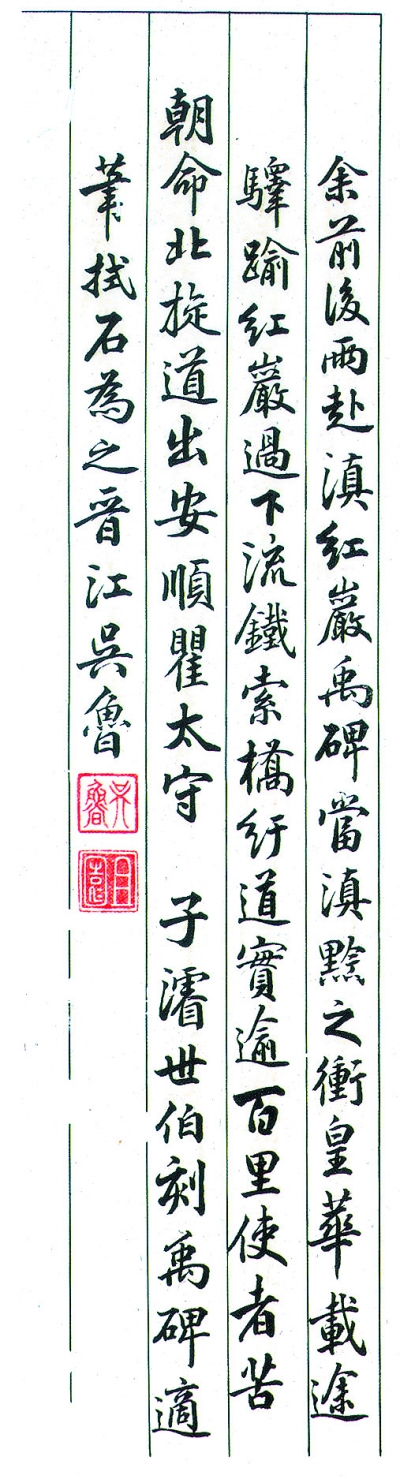 余前後兩赴滇紅巖禹碑當滇黔之衝皇華載途
驛踰紅巖過下流鐵索橋紆道實逾百里使者苦
朝命北旋道出安順瞿太守 子濬世伯刻禹碑適
筆拭石為之晉江吳魯
吳魯